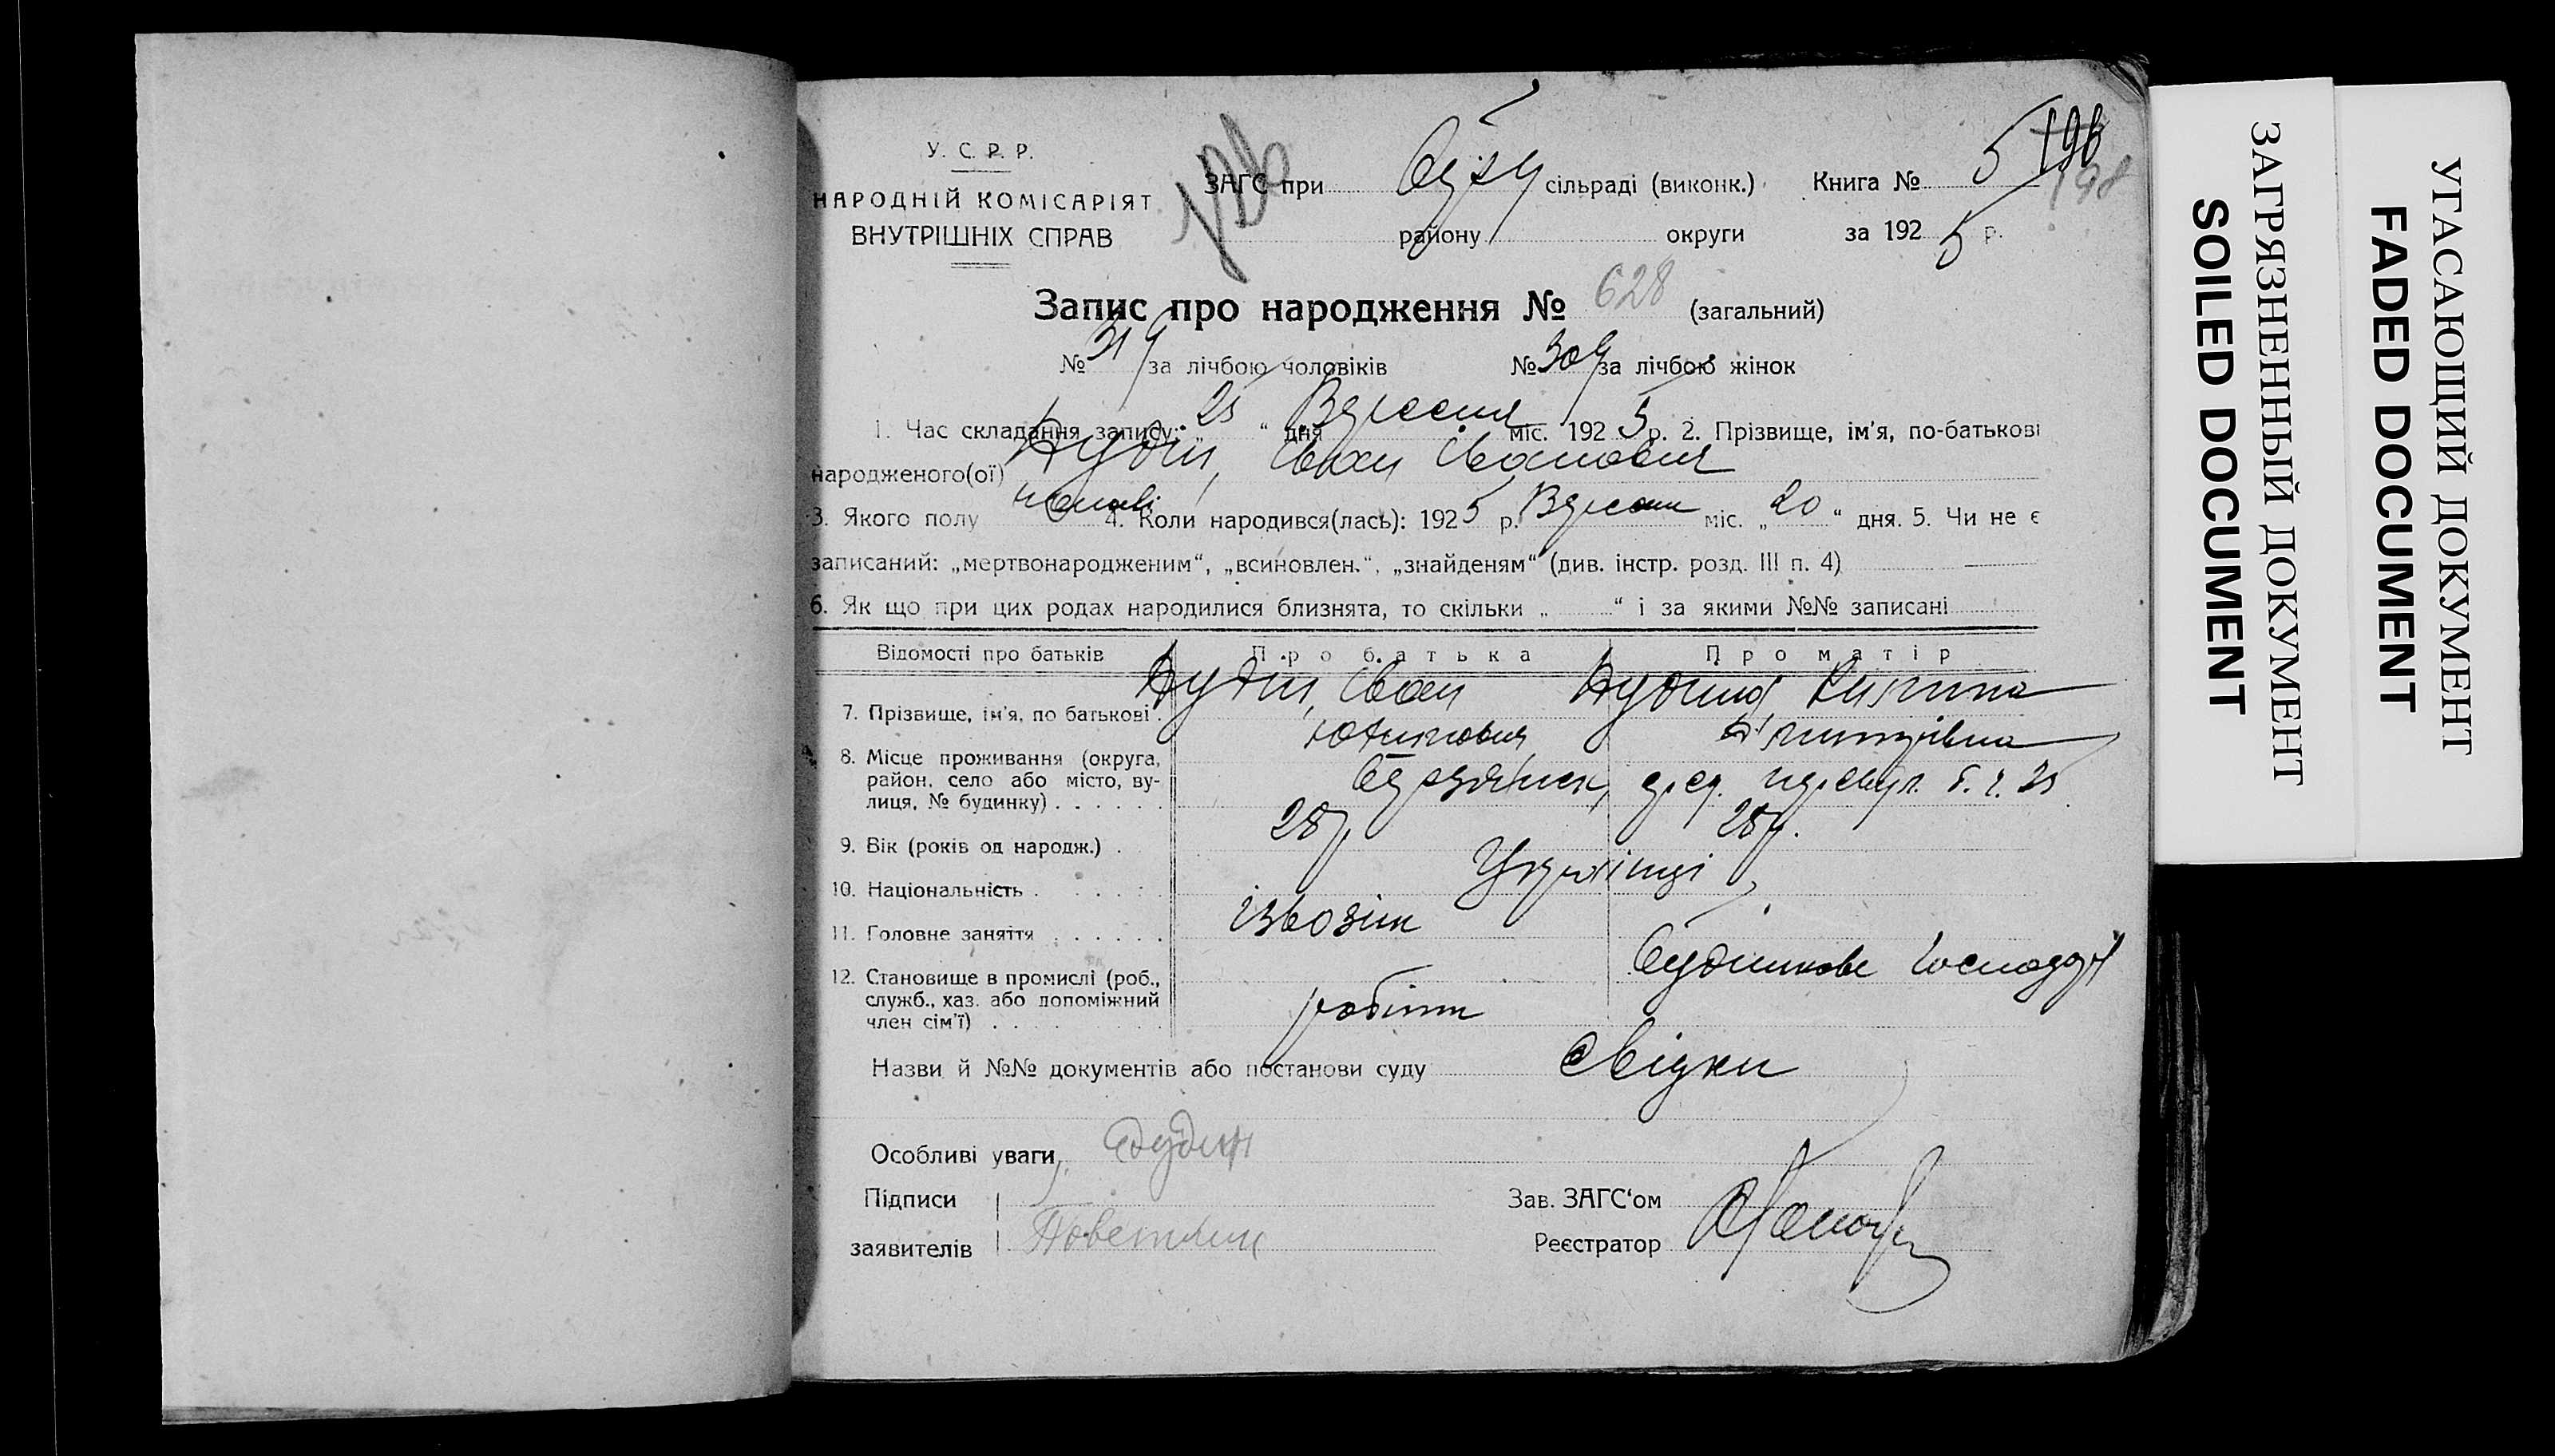 У. С. Р. Р.
НАРОДНІЙ КОМІСАРІЯТ
ВНУТРІШНІХ СПРАВ
ЗАГС при сільраді (виконк.) Книга № 5 196
198
району округи за 192 5 р.
Запис про народження № 628 (загальний)
№ 319 за лічбою чоловіків № 309 за лічбою жінок
1. Час складання запису: „ 25 “ дня Вересня міс. 192 5 р. 2. Прізвище, ім'я, по-батькові
народженого(ої) Іван Іванович
3. Якого полу чолові 4. Коли народився(лась): 192 5 р. Вересня міс. „ 20 “ дня. 5. Чи не є
записаний: „мертвонародженим“, „всиновлен.“, „знайденям“ (див. інстр. розд. III п. 4)
6. Як що при цих родах народилися близнята, то скільки „ “ і за якими №№ записані
Відомості про батьків Про батька Про матір
7. Прізвище, ім'я, по батькові . Іван
8. Місце проживання (округа, район, село або місто, вулиця, № будинку) . . . . . . б. ч. 25
9. Вік (років од народж.) . 28р. 28р.
10. Національність . . . . . Українці
11. Головне заняття . . . . . . ізвозик
12. Становище в промислі (роб., служб., хаз. або допоміжний член сім'ї) . . . . робітн
Назви й №№ документів або постанови суду свідки
Особливі уваги
Підписи
заявителів
Зав. ЗАГС‘ом
Реєстратор
ЗАГРЯЗНЕННЫЙ ДОКУМЕНТ
SOILED DOCUMENT
УГАСАЮЩИЙ ДОКУМЕНТ
FADED DOCUMENT